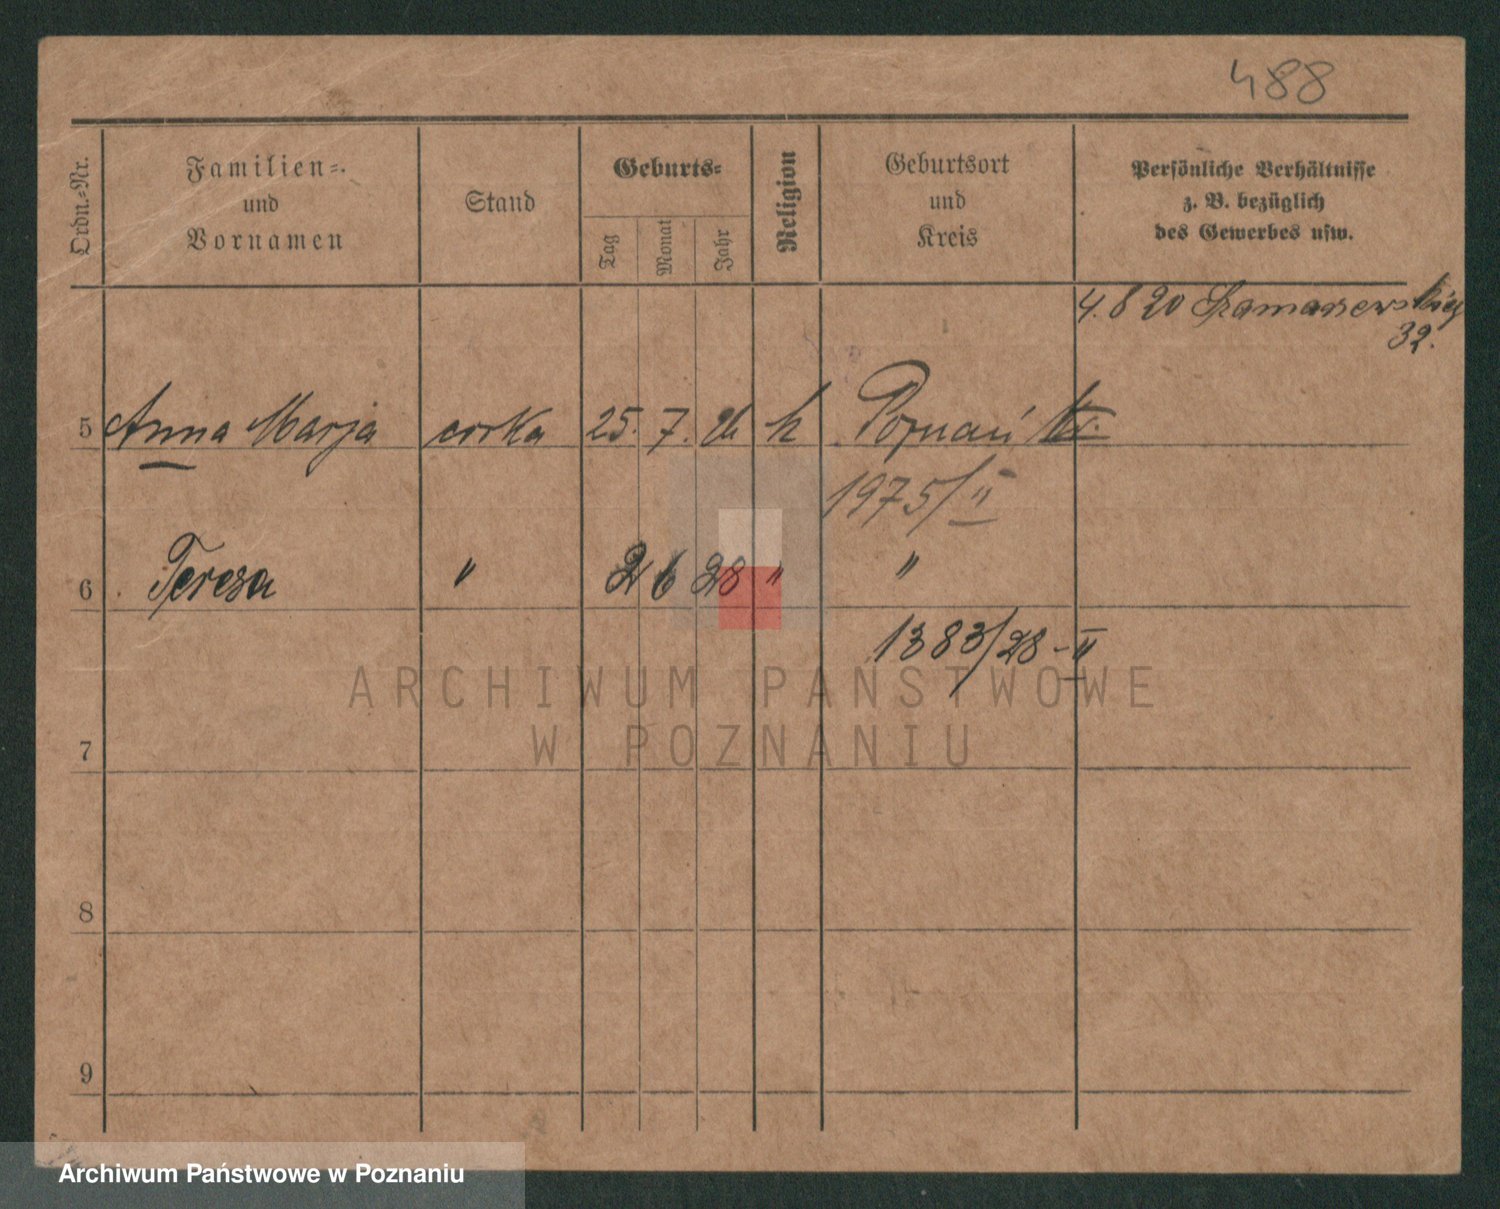 488
Ordn.-Nr.
Familien-
und
Vornamen
Stand
Geburts-
Tag
Monat
Jahr
Religion
Geburtsort
und
Kreis
Persönliche Verhältnisse
z. B. bezüglich
des Gewerbes usw.
4. 8 20
32.
5 Anna Marja corka 25. 7. k Poznań
1975/II
6 Teresa " 2 6 28 " "
1383/28-II
7
8
9
ARCHIWUM PAŃSTWOWE
W POZNANIU
Archiwum Państwowe w Poznaniu